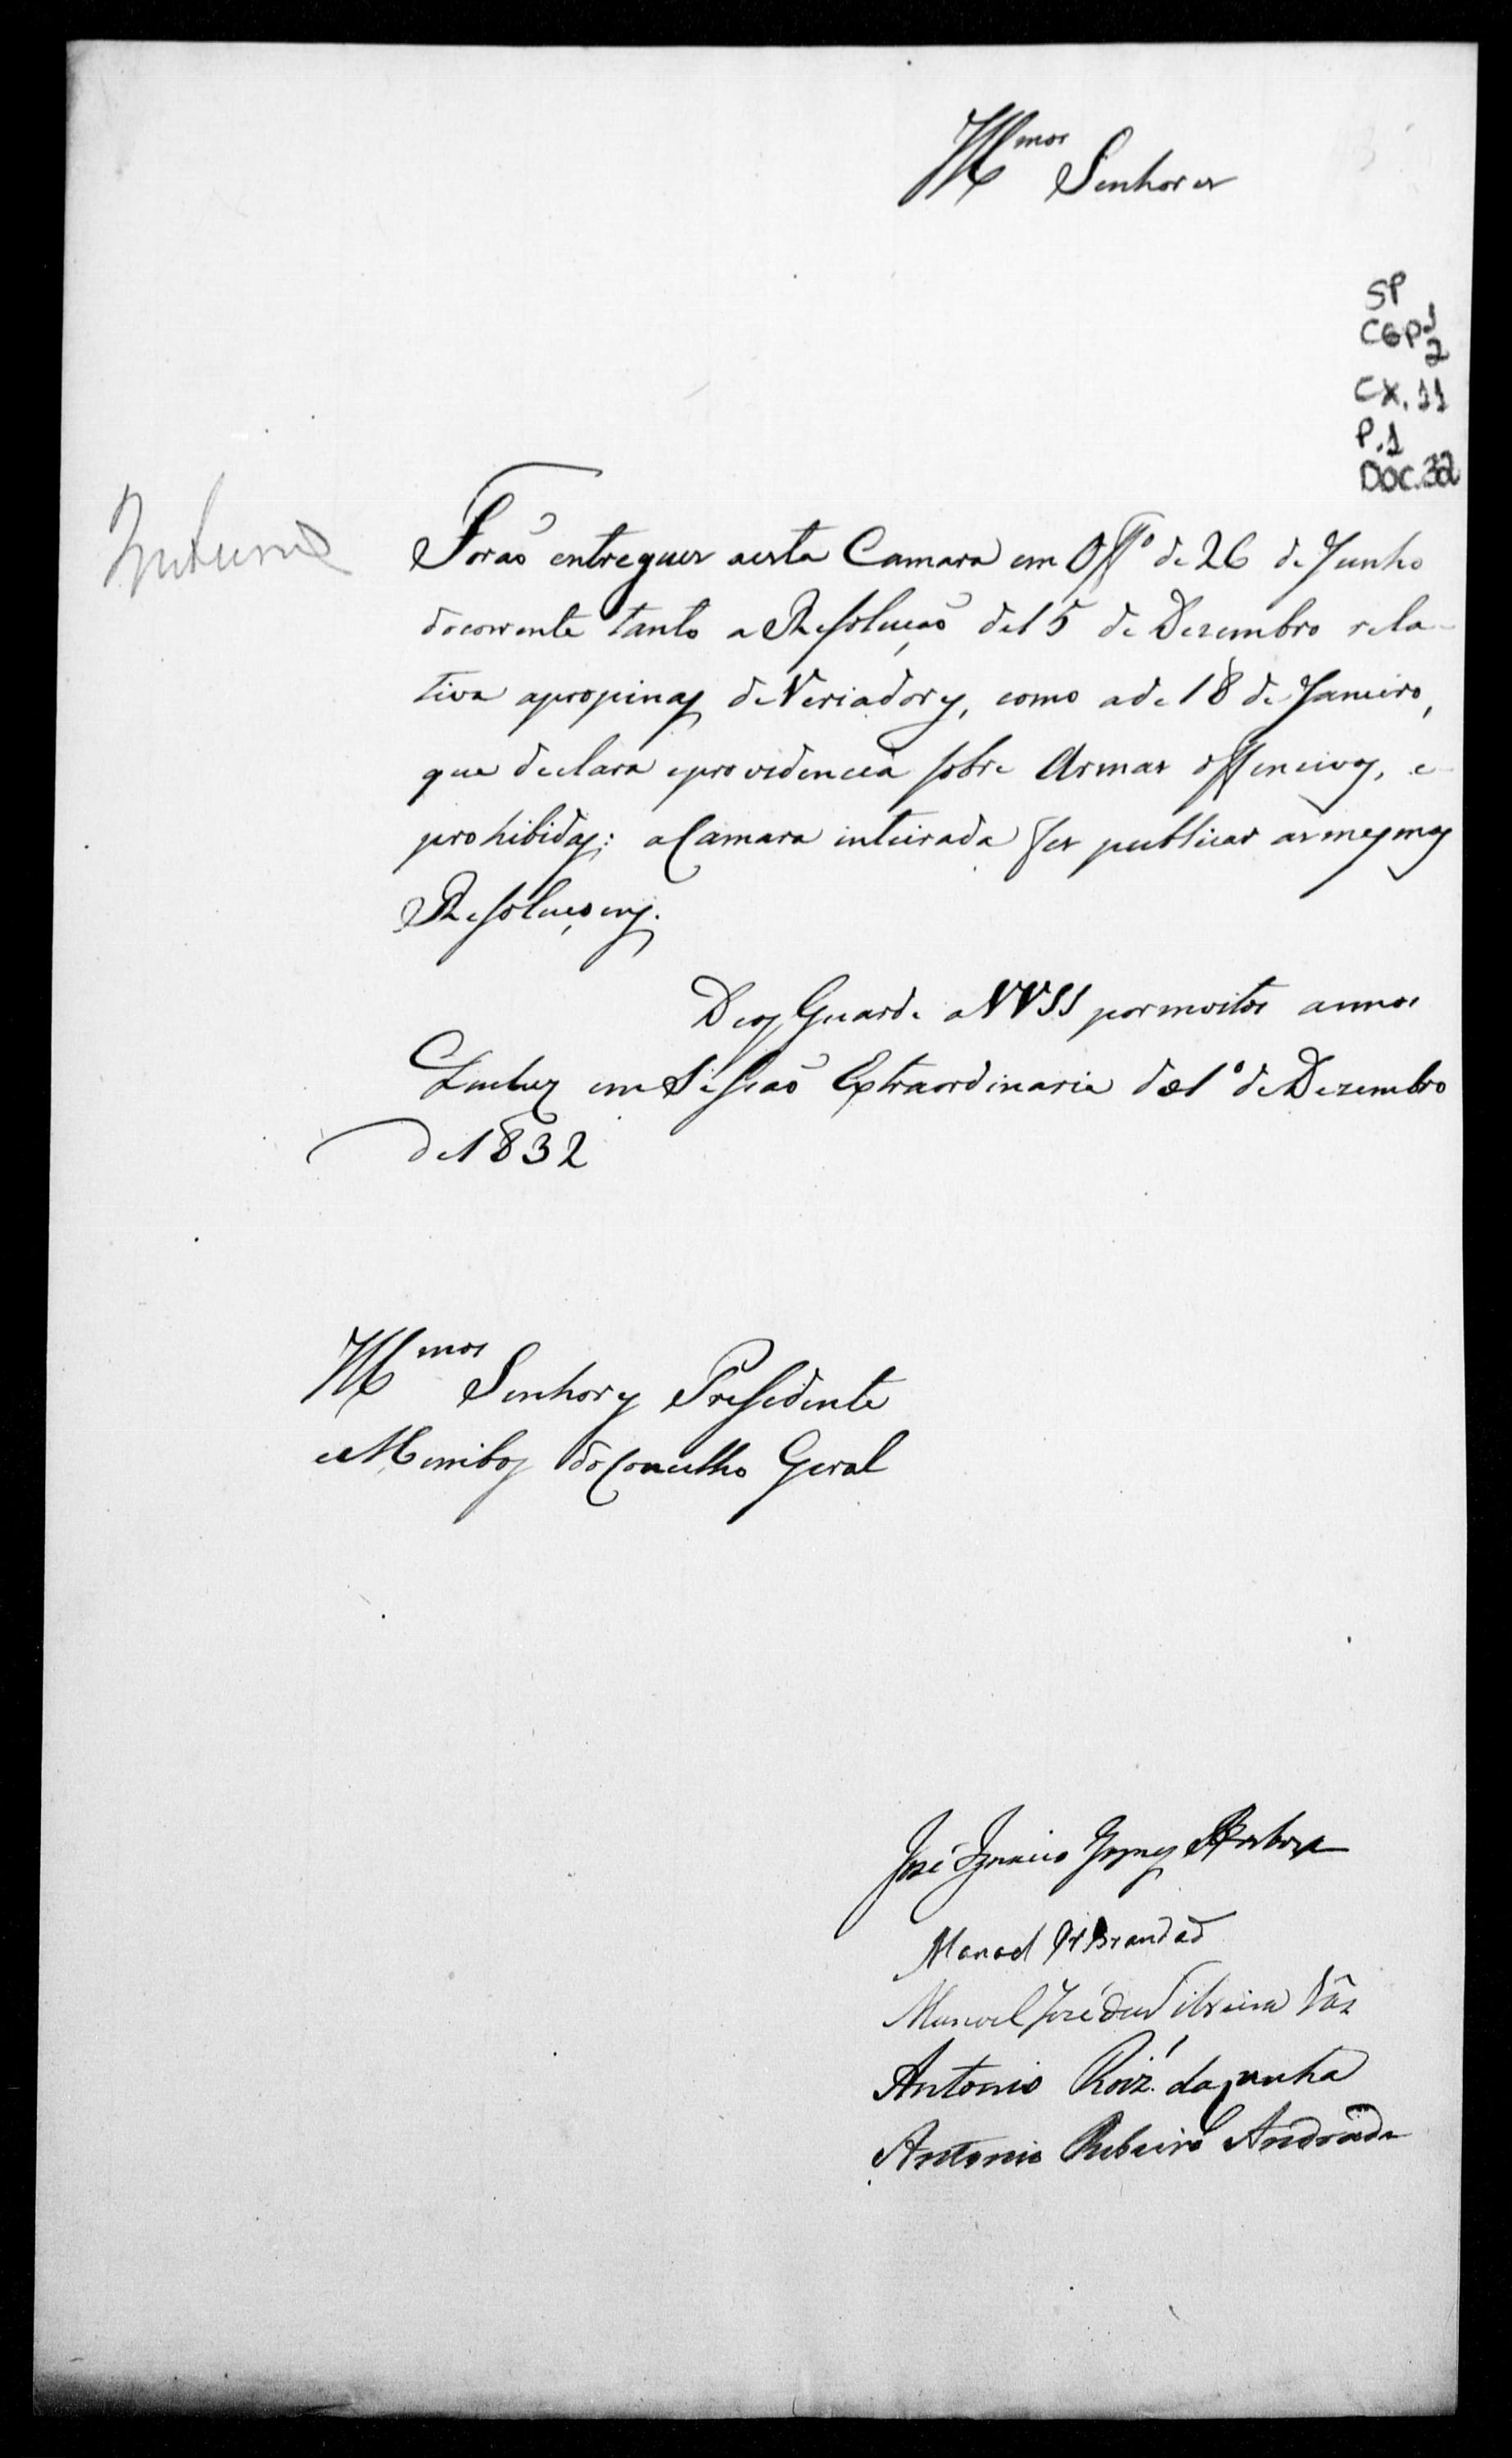 Illmos Senhores
SP
CGP1
2
CX. 11
P.1
DOC.32
Forão entregues aesta Camara em Offo de 26 de Junho
docorrente tanto a Resolução de15 de Dezembro rela-
tiva apropinas deVeriadores, como ade 18 de Janeiro,
que declara eprovidencia sobre Armas offencivas, e
prohibidas: aCamara inteirada fes publicar asmesmas
Resoluçoens.
Deos Guarde aVVSS pormoitos annos
em Sessão Extraordinaria do1º deDezembro
de1832
Illmos Senhores Presidente
eMembos doConcelho Geral
José Ignacio Gomes Barboza
Manoel Pr Brandaõ
Manoel José da Silveira Vaz
Antonio Roiz' daCunha
Antonio Ribeiro Andrade